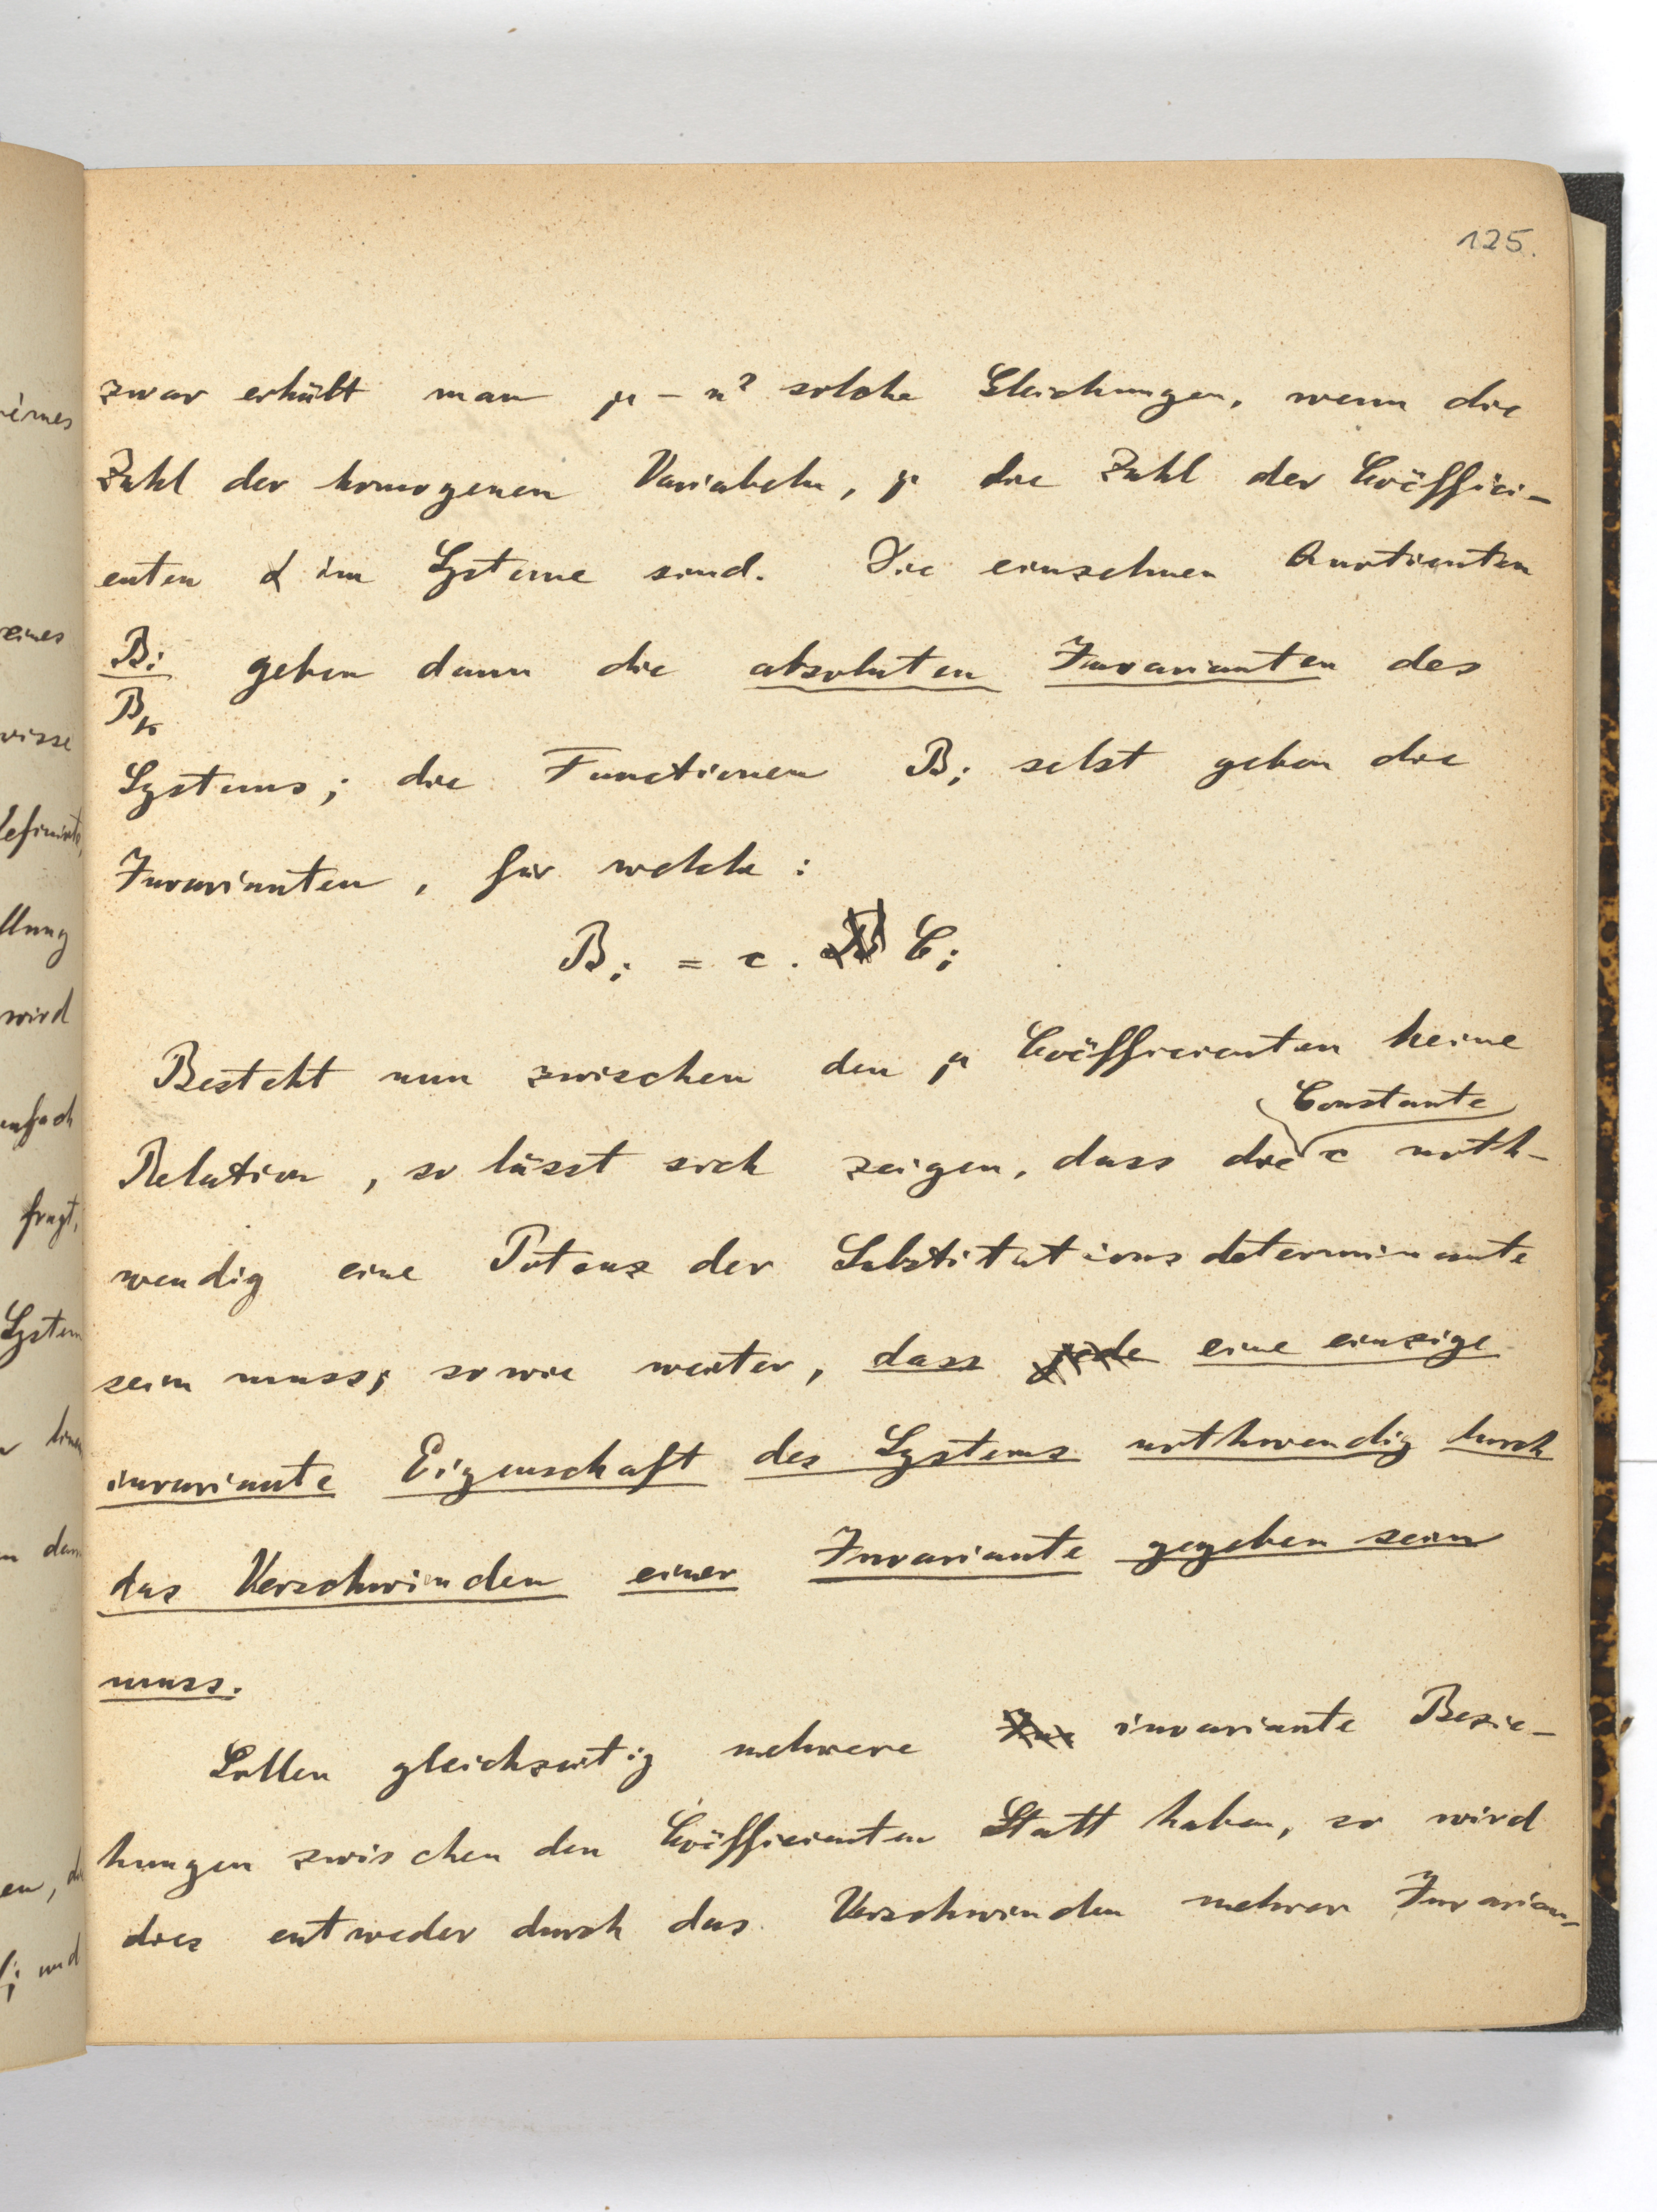 125.
zwar erhält man μ - n² solche Gleichungen, wenn die
Zahl der homogenen Variabeln, μ die Zahl der Coëffici-
enten α im Systeme sind. Die einzelnen Quotienten
B_i/B_k geben dann die absoluten Invarianten des
Systems; die Functionen B_i selbst geben die
Invarianten, für welche:
B_i = c . C_i
Besteht nun zwischen den μ Coëfficienten keine
Constante
Relation, so lässt sich zeigen, dass die c noth-
wendig eine Potenz der Substitutionsdeterminante
sein muss; sowie weiter, dass jede eine einzige
invariante Eigenschaft des Systems nothwendig durch
das Verschwinden einer Invariante gegeben sein
muss.
Sollen gleichzeitig mehrere Inv invariante Bezie-
hungen zwischen den Coëfficienten Statt haben, so wird
dies entweder durch das Verschwinden mehrer Invarian-
eines
eines
wisse
llung
wird
nfach
fragt,
System